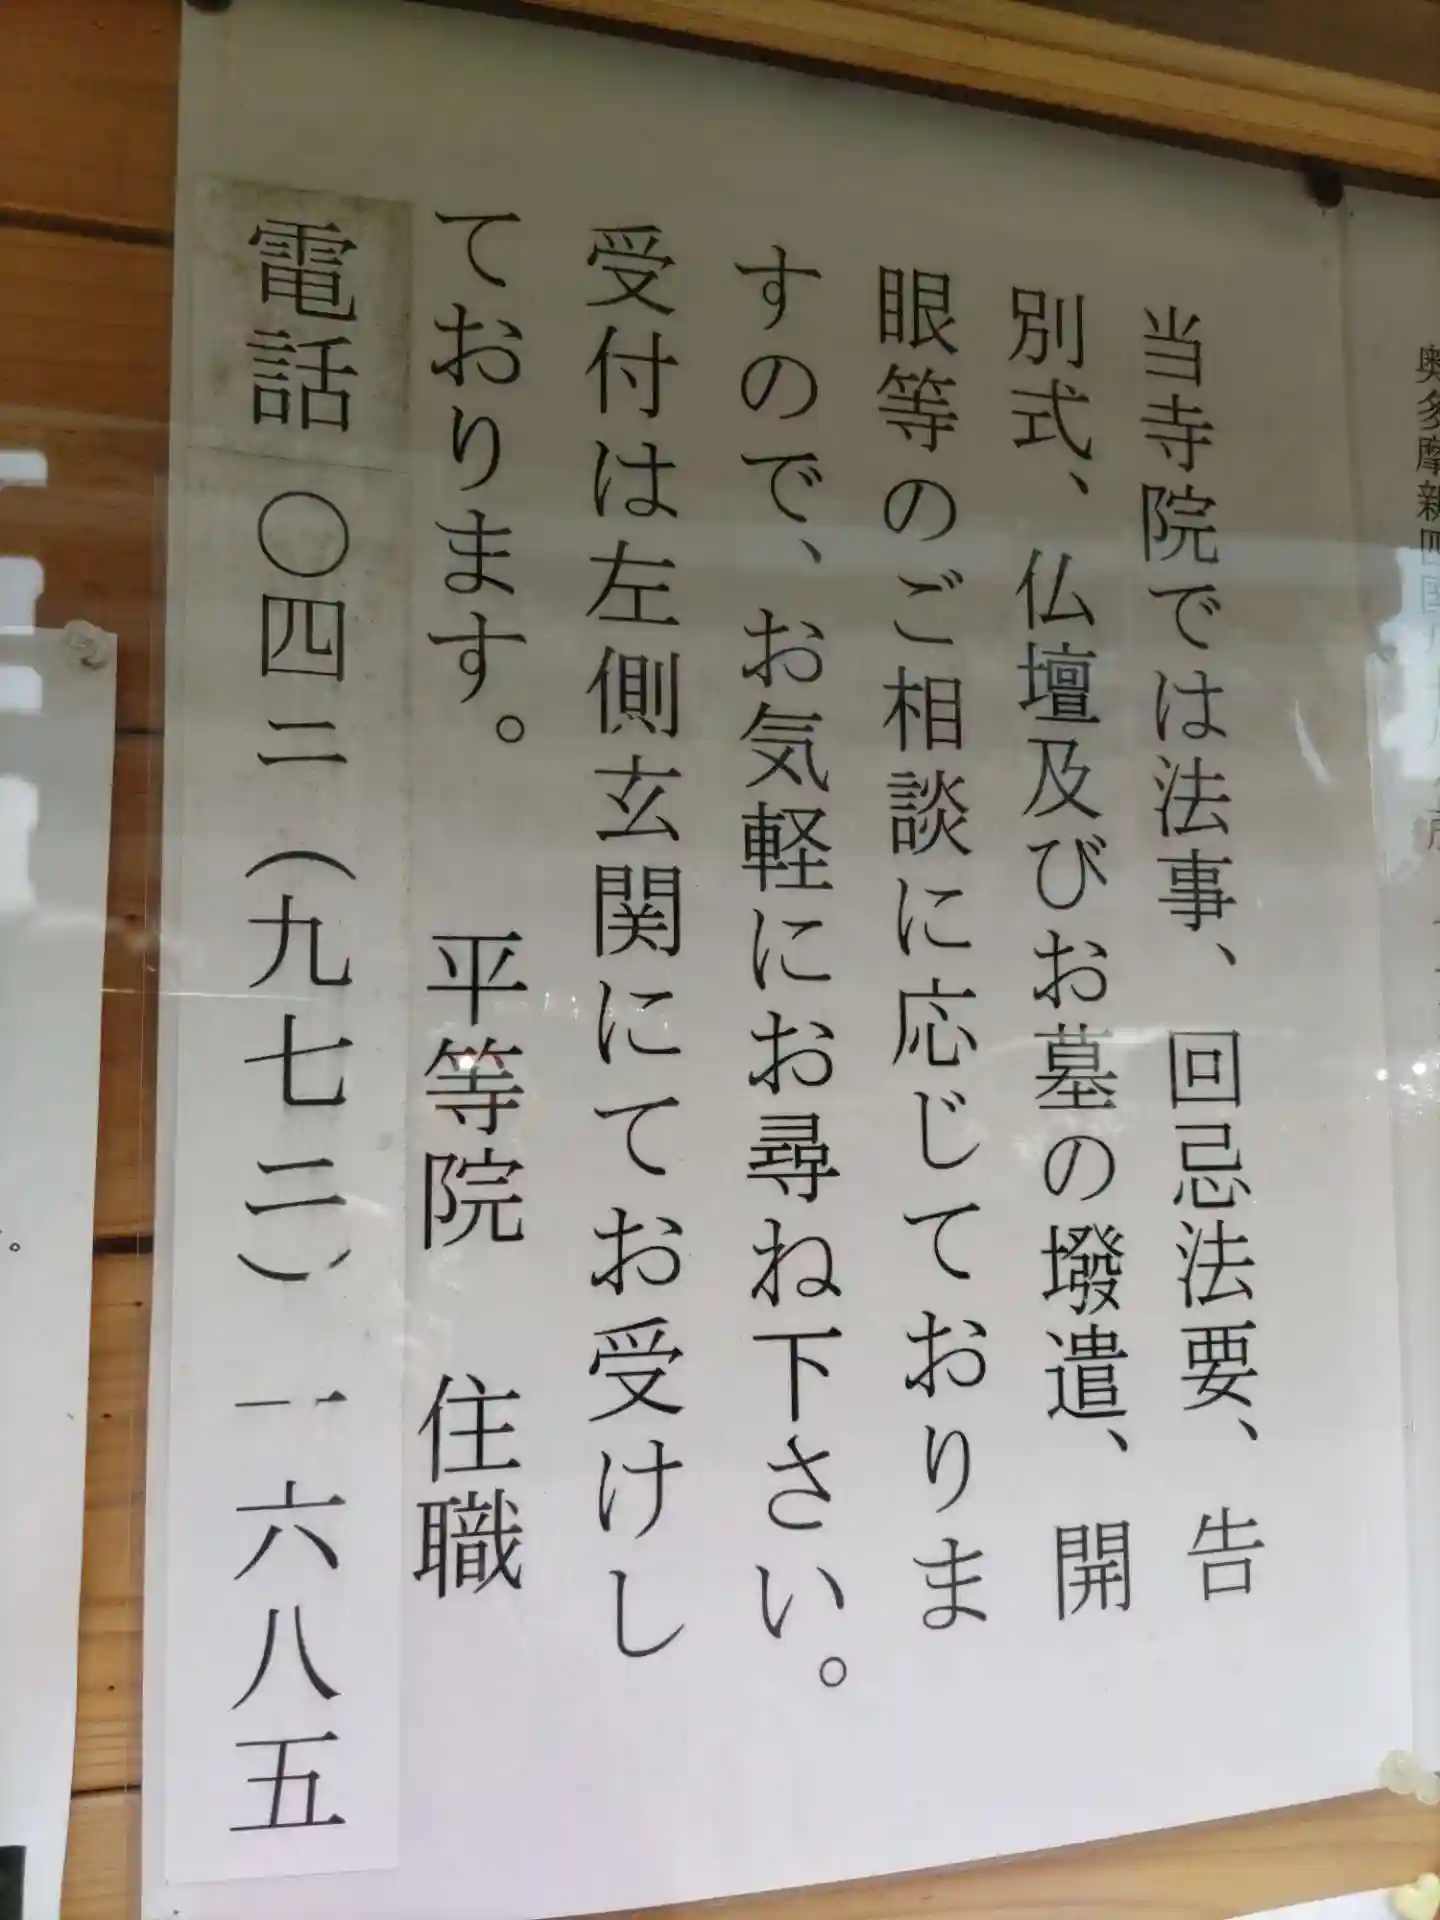 当寺院では法事、回忌法要、告
別式、仏壇及びお墓の墢遣、開
眼等のご相談に応じておりま
すので、お気軽にお尋ね下さい。
受付は左側玄関にてお受けし
ております。　平等院　住職
電話〇四二(九七二)一六八五
奥多摩新四国